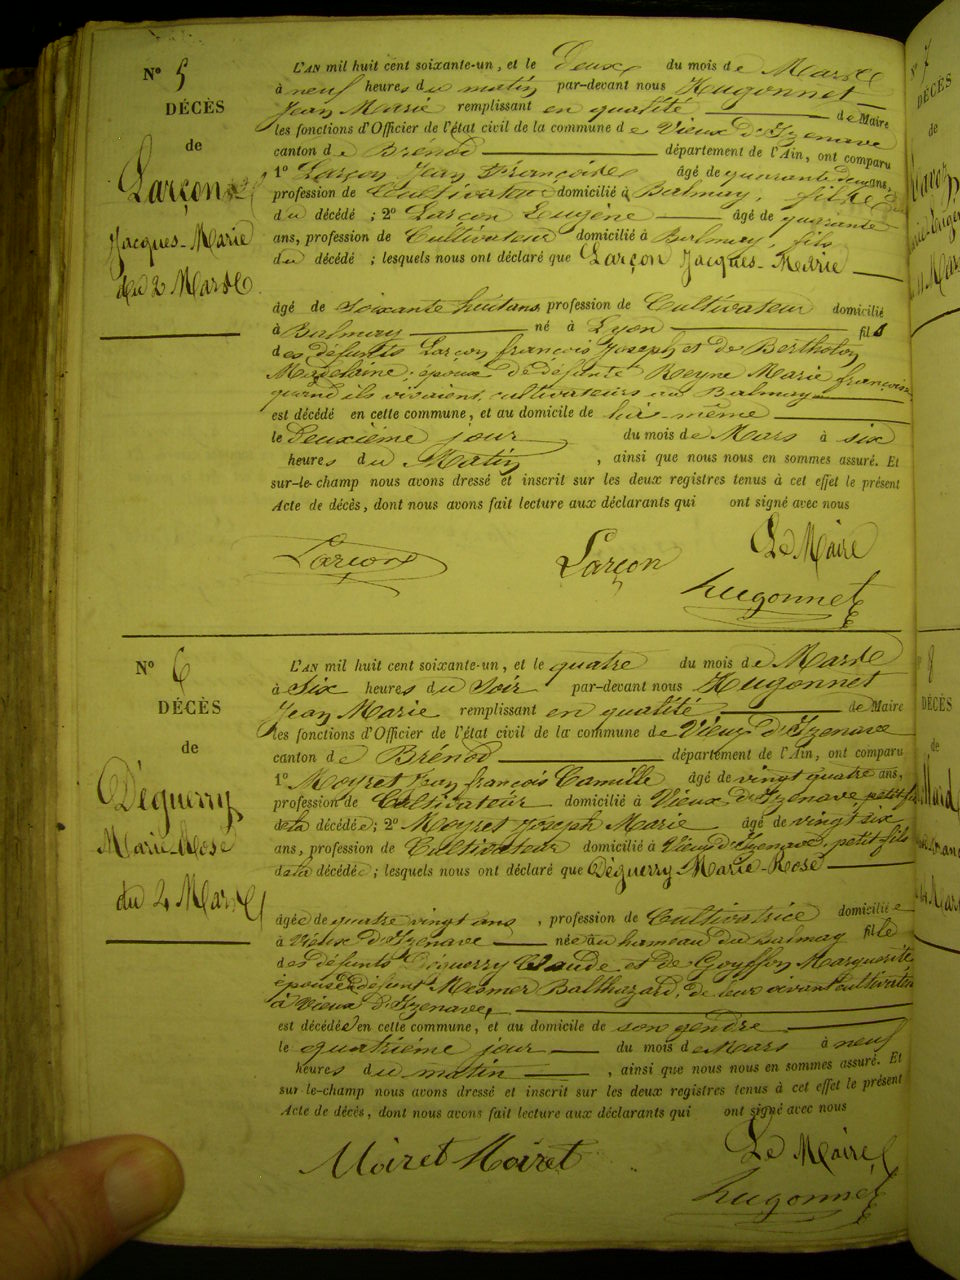 N° 5
DÉCÈS
de
Larçon
Jacques-Marie
du 2 Mars
L'AN mil huit cent soixante-un, et le Deux du mois de Mars
à neuf heures du matin par-devant nous Hugonnet
Jean Marie remplissant en qualité de Maire
les fonctions d'Officier de l'état civil de la commune de Vieux d'Izenave
canton de Brénod département de l'Ain, ont comparu
1° Larçon Jean François âgé de quarante deux ans,
profession de Cultivateur domicilié à Balmay, fils
du décédé ; 2° Larçon Eugène âgé de quarante
ans, profession de Cultivateur domicilié à Balmay, fils
du décédé ; lesquels nous ont déclaré que Larçon Jacques-Marie
âgé de soixante huit ans profession de Cultivateur domicilié
à Balmay né à Lyon fils
des défunts Larçon françois Joseph et de Bertholon
Madelaine, époux de défunte Reyne Marie françoise
quand ils vivaient, cultivateurs au Balmay
est décédé en cette commune, et au domicile de lui-même
le Deuxième jour du mois de Mars à six
heures du Matin , ainsi que nous nous en sommes assuré. Et
sur-le-champ nous avons dressé et inscrit sur les deux registres tenus à cet effet le présent
Acte de décès, dont nous avons fait lecture aux déclarants qui ont signé avec nous
Larçon Larçon Le Maire
hugonnet
N° 6
DÉCÈS
de
Déguerry
Marie-Rose
du 4 Mars
L'AN mil huit cent soixante-un, et le quatre du mois de Mars
à Six heures du Soir par-devant nous Hugonnet
Jean Marie remplissant en qualité de Maire
les fonctions d'Officier de l'état civil de la commune de Vieux d'Izenave
canton de Brénod département de l'Ain, ont comparu
1° Moyret Jean françois Camille âgé de vingt quatre ans,
profession de Cultivateur domicilié à Vieux d'Izenave petit fils
de la décédée ; 2° Moyret Joseph Marie âgé de vingt six
ans, profession de Cultivateur domicilié à Vieux d'Izenave, petit fils
de la décédée ; lesquels nous ont déclaré que Déguerry Marie-Rose
âgée de quatre vingt ans , profession de Cultivatrice domiciliée
à Vieux d'Izenave née au hameau du Balmay fille
des défunts Déguerry Claude et de Goyffon Marguerite
épouse de défunt Mesmer Balthazard, de leur vivant cultivateurs
à Vieux d'Izenave,
est décédée en cette commune, et au domicile de son gendre
le quatrième jour du mois de Mars à neuf
heures du matin , ainsi que nous nous en sommes assuré. Et
sur-le-champ nous avons dressé et inscrit sur les deux registres tenus à cet effet le présent
Acte de décès, dont nous avons fait lecture aux déclarants qui ont signé avec nous
Moiret Moiret Le Maire
hugonnet
N° 7
DÉCÈS
de
N° 8
DÉCÈS
de